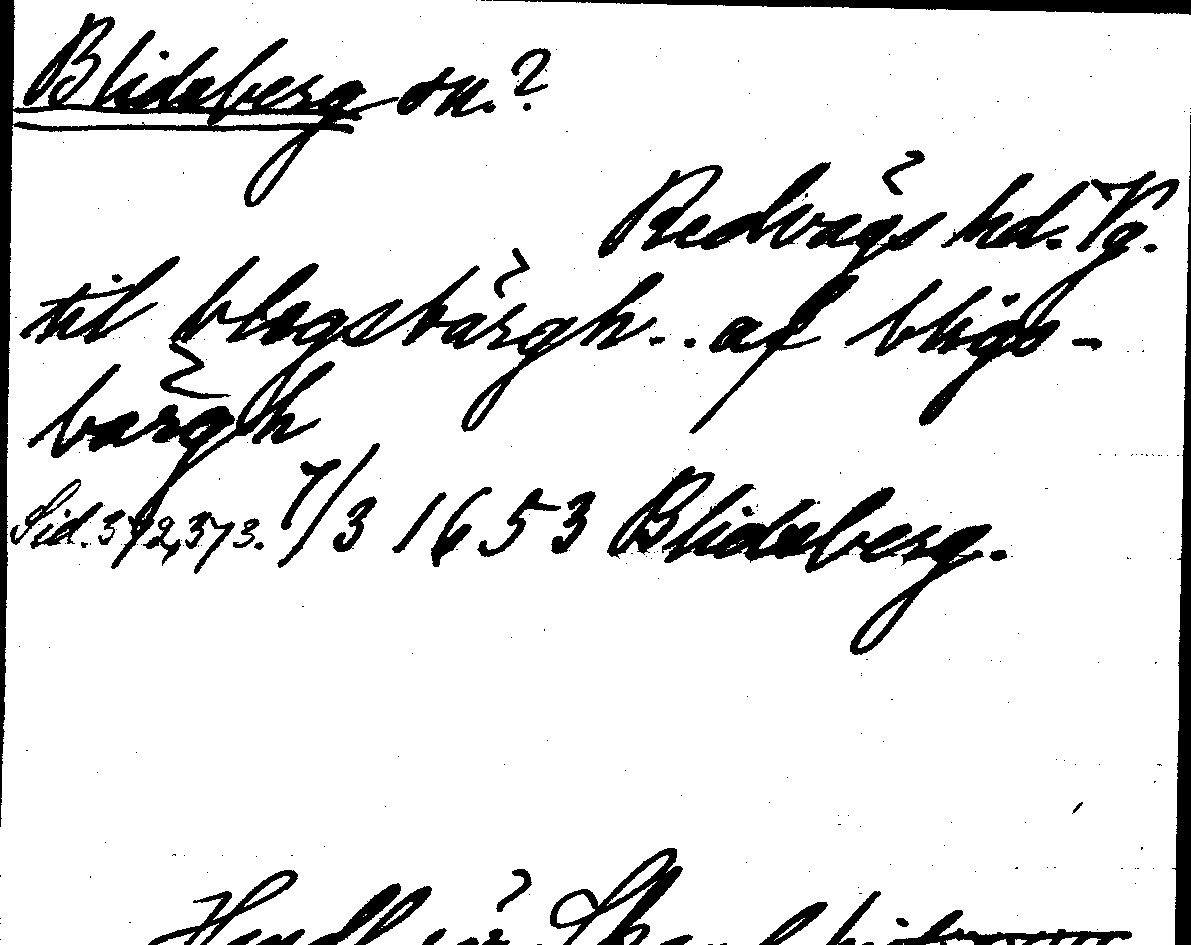 Blideberg sn.?
Redvägs hd. Vg.
til blegsbärgh.. af bligs-
bärgh
Sid. 372, 373. 7/3 1653 Blideberg.
Handl. rör. Skand. hist